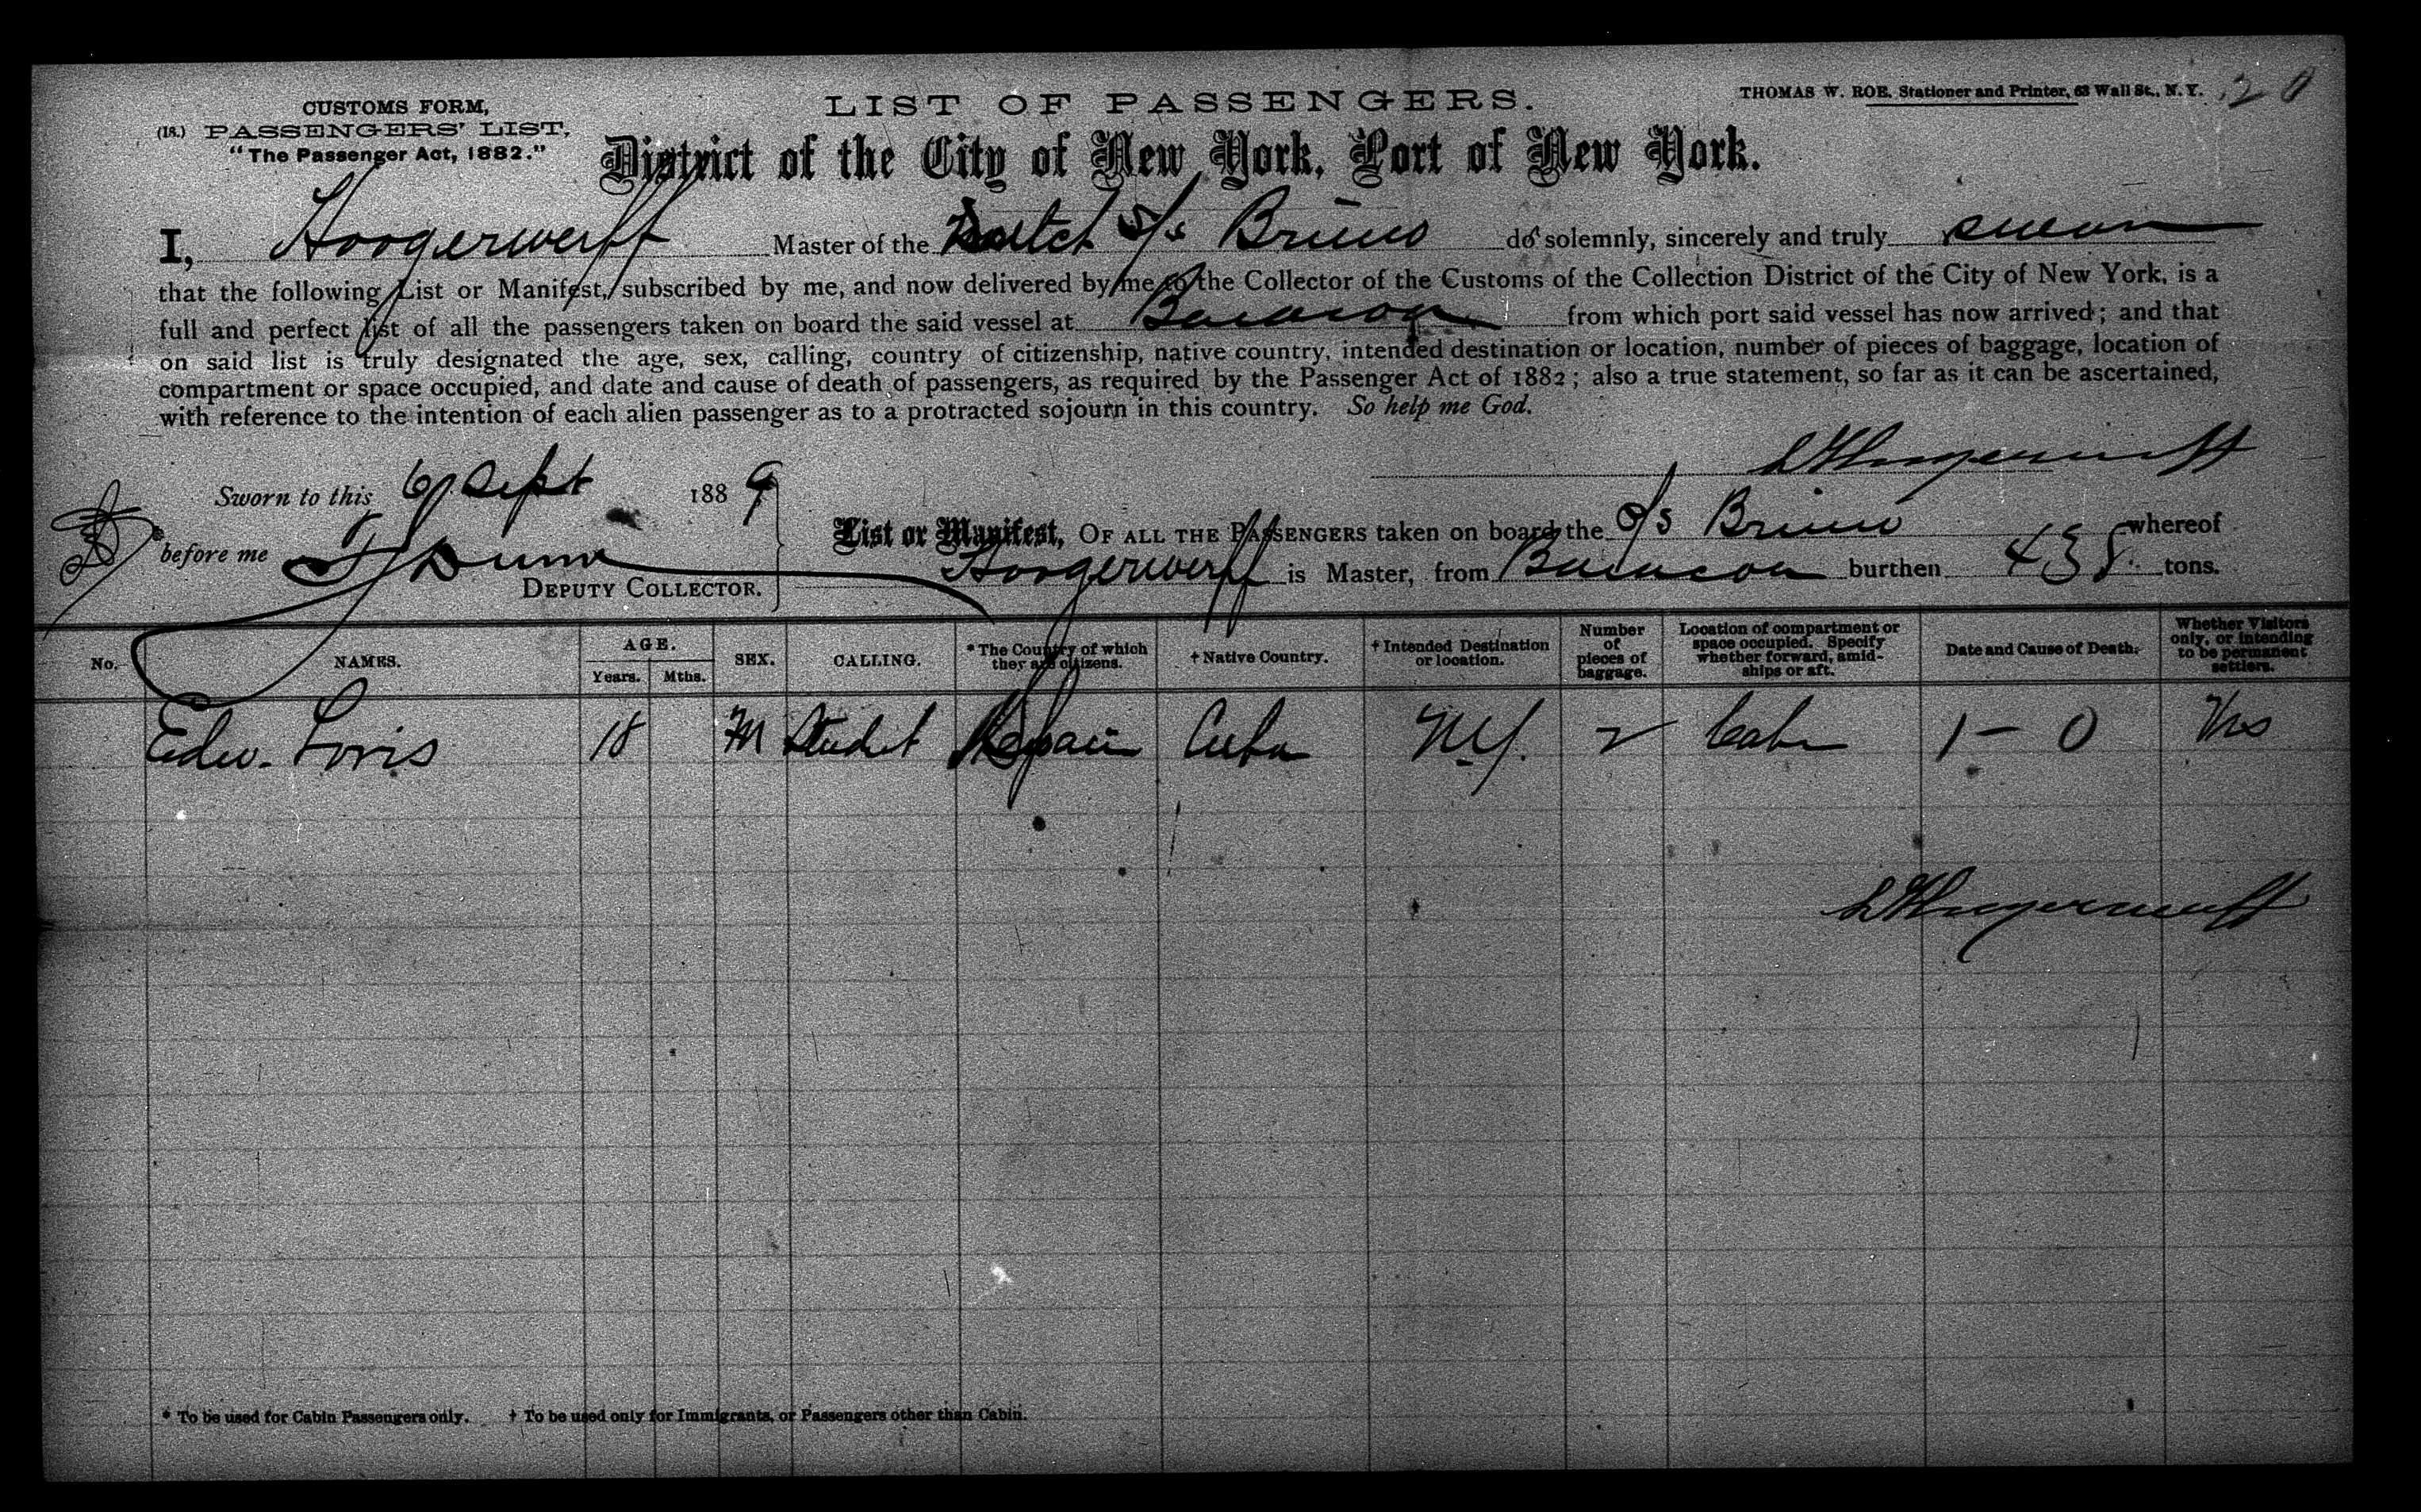 CUSTOMS FORM,
(18.) PASSENGERS' LIST,
"The Passenger Act, 1882."
LIST OF PASSENGERS.
THOMAS W. ROE, Stationer and Printer, 63 Wall St., N. Y.
District of the City of New York, Port of New York.
I, Hoogerwerff Master of the Dutch S/s Bruno do solemnly, sincerely and truly swear
that the following List or Manifest, subscribed by me, and now delivered by me to the Collector of the Customs of the Collection District of the City of New York, is a
full and perfect list of all the passengers taken on board the said vessel at Baracoa from which port said vessel has now arrived; and that
on said list is truly designated the age, sex, calling, country of citizenship, native country, intended destination or location, number of pieces of baggage, location of
compartment or space occupied, and date and cause of death of passengers, as required by the Passenger Act of 1882; also a true statement, so far as it can be ascertained,
with reference to the intention of each alien passenger as to a protracted sojourn in this country. So help me God.
Hoogerwerff
Sworn to this 6 Sept 1889
before me
DEPUTY COLLECTOR.
List or Manifest, OF ALL THE PASSENGERS taken on board the S/s Bruno whereof
Hoogerwerff is Master, from Baracoa burthen 438 tons.
No. NAMES. AGE. Years. Mths. SEX. CALLING. * The Country of which they are citizens. † Native Country. † Intended Destination or location. Number of pieces of baggage. Location of compartment or space occupied. Specify whether forward, amidships or aft. Date and Cause of Death. Whether Visitors only, or intending to be permanent settlers.
Edw. 18 M Studet Spain Cuba N.Y. 2 Cabin 1 - 0
Hoogerwerff
* To be used for Cabin Passengers only. † To be used only for Immigrants, or Passengers other than Cabin.